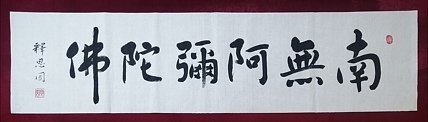 南無阿彌陀佛
釋思同